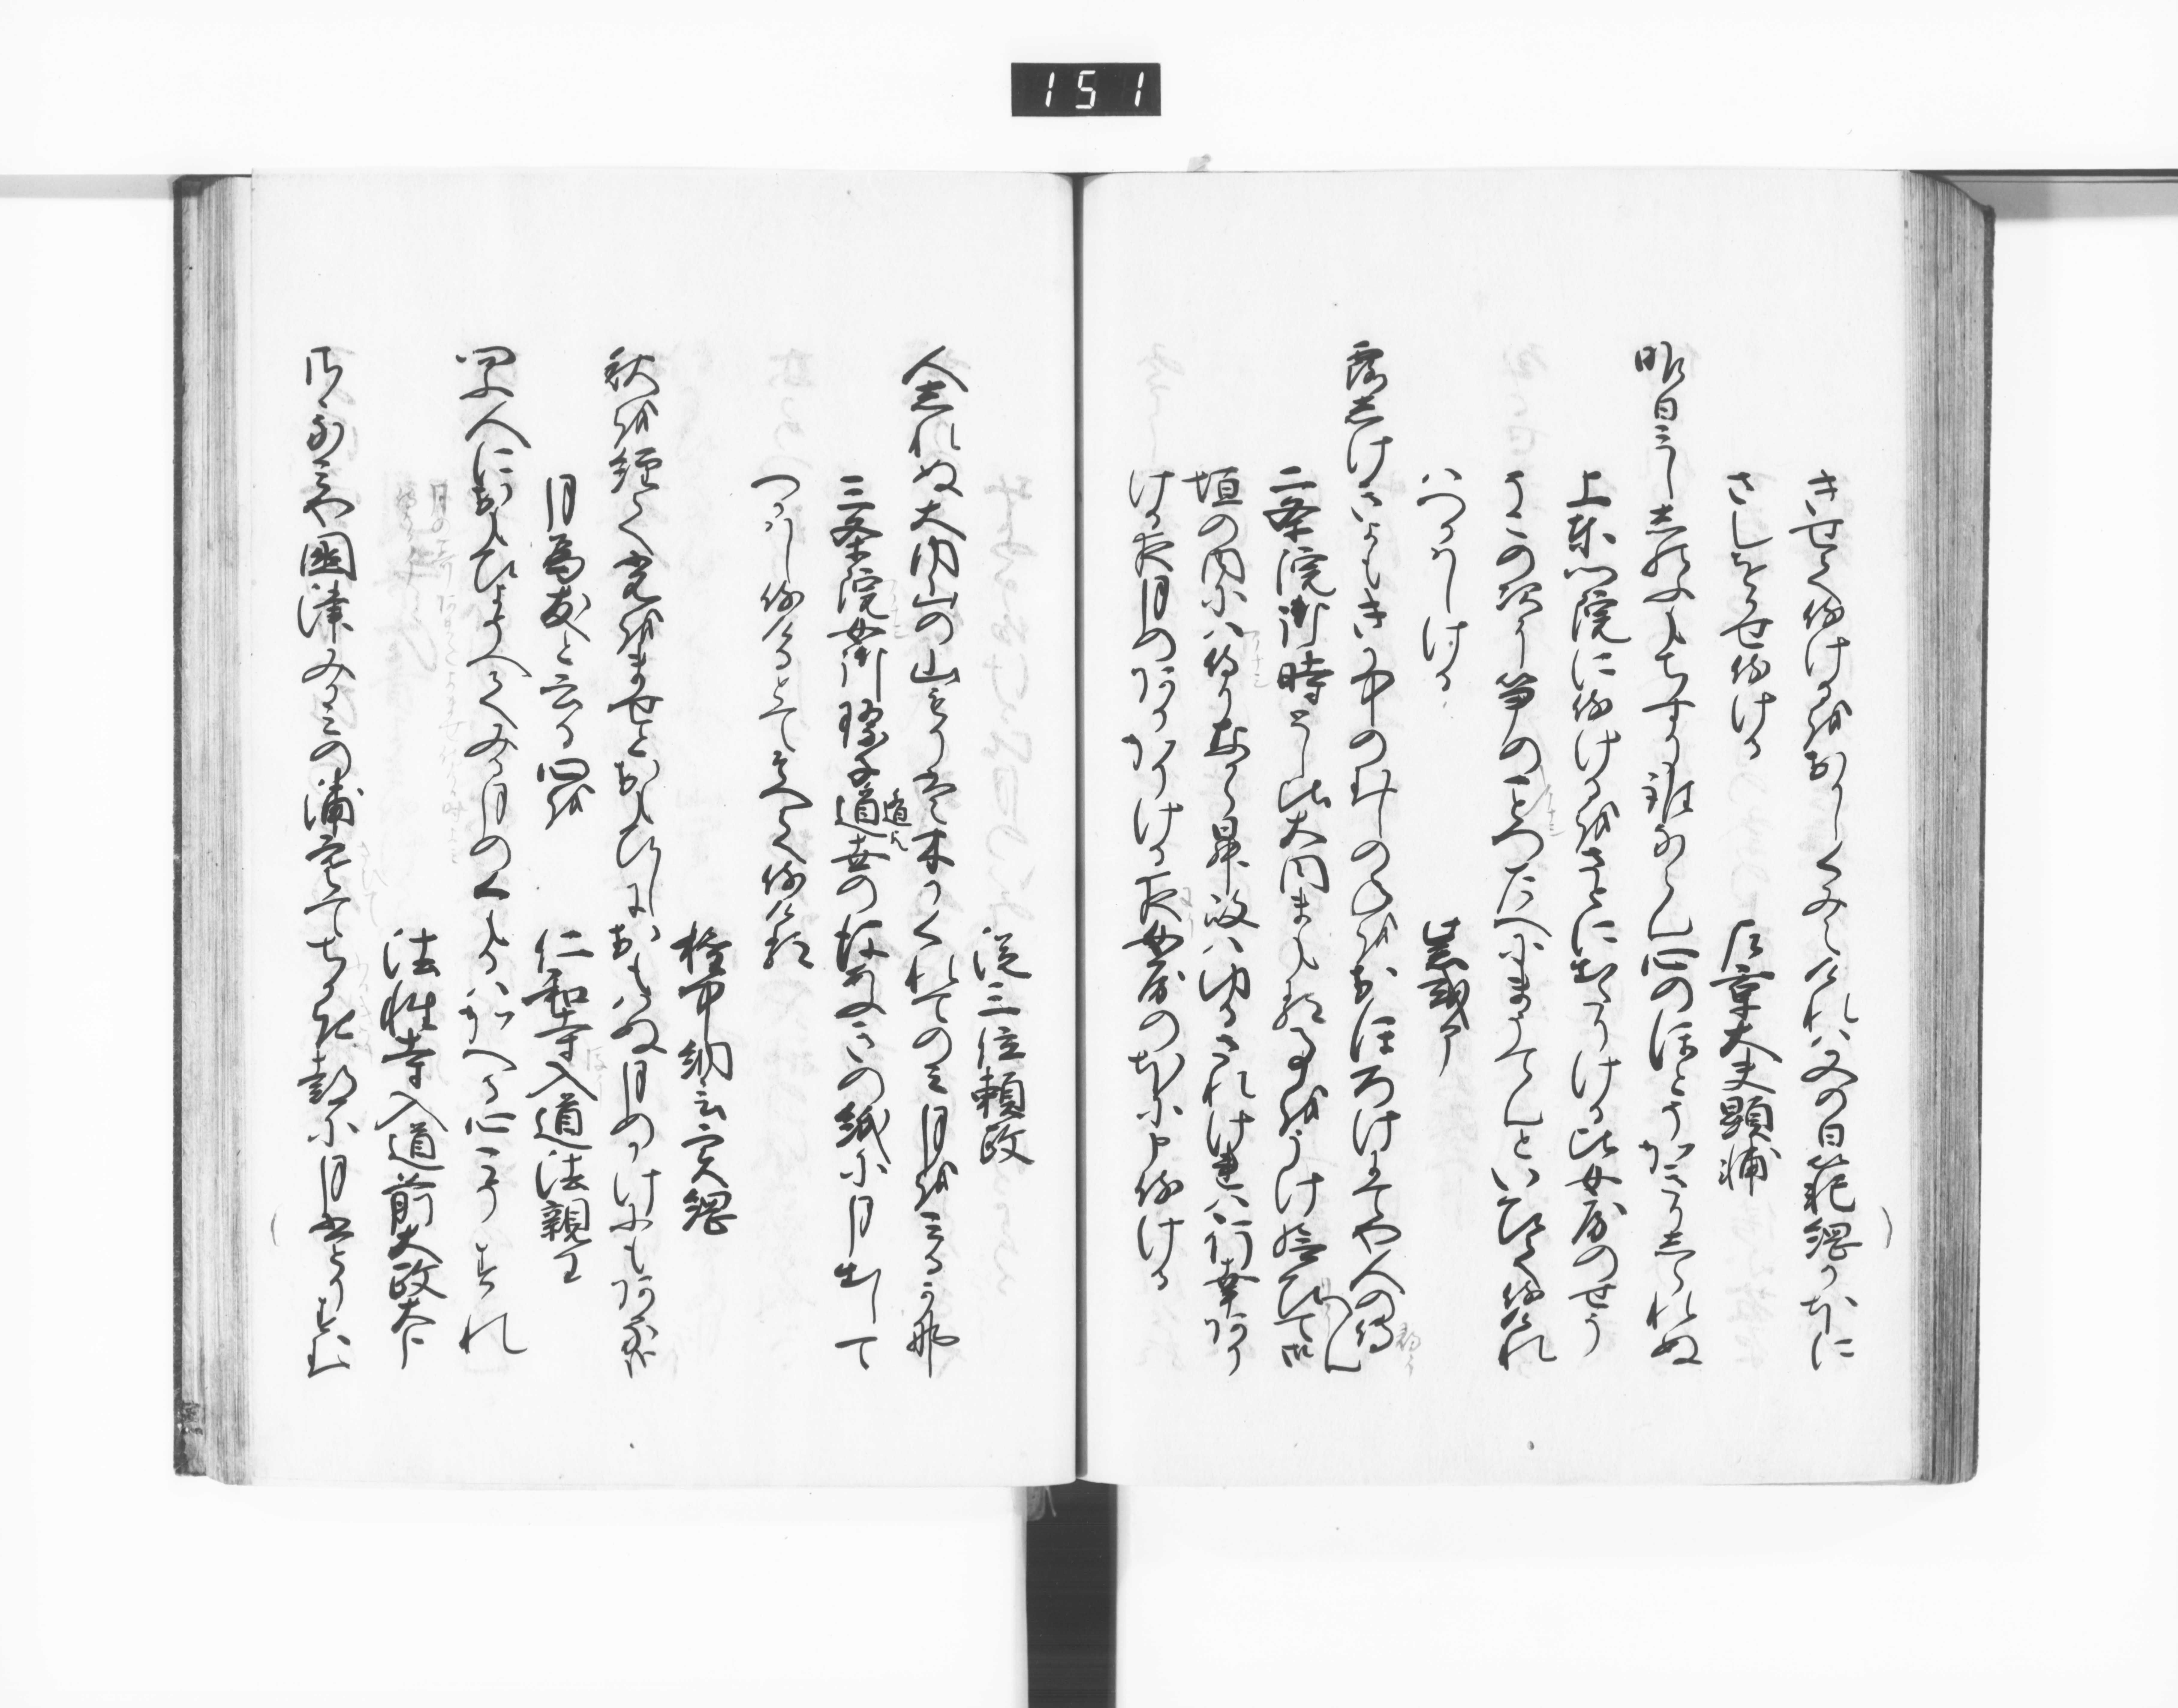 151
きせて侍けるをおかしくみえけれは又の日範綱かもとに
さしをかせ侍ける　左京大夫顕輔
昨日みししのふもちすり誰ならん心のほとそかきりしられぬ
上東門院に侍けるをさとに出たりける比女房のせう
そこの次に筝のことつたへにまうてんといひて侍けれ
はつかはしける　紫式部
露しけきよもきか中のむしのねをおほろけにてや人の尋ん
二条院御時とし比大内まもる事をうけ給ひて御
垣の内には侍なから昇殿はゆるされさりけれは行幸あり
ける夜月のあかゝりける夜女房のもとに申侍ける
従三位頼政
人しれぬ大内山の山もりは木かくれてのみ月をみるかな
三条院女御琮子遁世の後あふきの紙に月出して
つかはし侍るとてそへて侍ける
権中納言実綱
秋を経て光をませとおもひしにおもはぬ月のかけにもあるかな
月為友と云る心を　仁和寺入道法親王
問人におもひよそへてみる月のくもるはかへる心ちこそすれ
法性寺入道前太政大臣
さゝなみや国津みかみの浦さひてふるき都に月独すむ